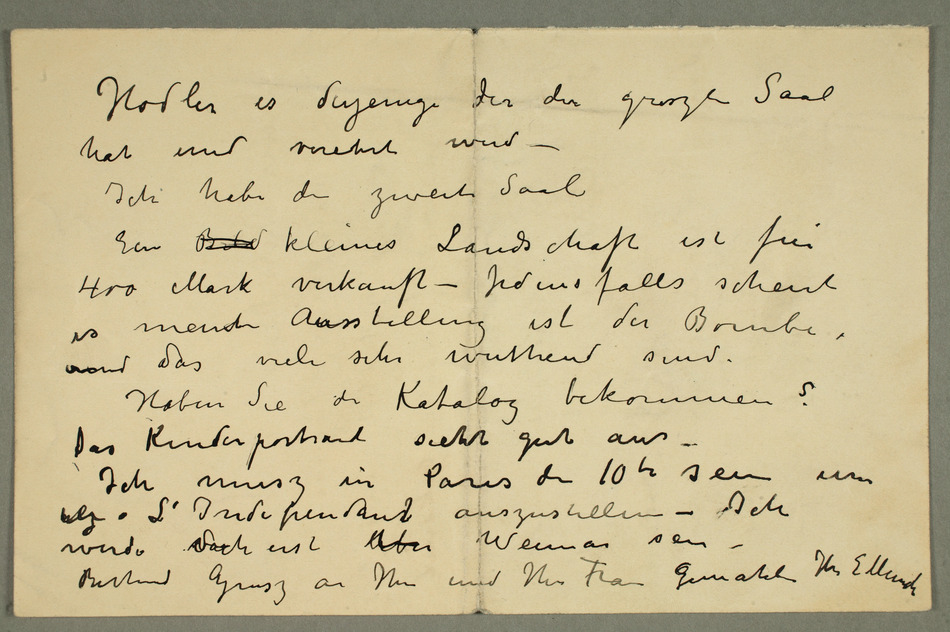 Hodler es dijenige der der groszte Saal
hat und verehrt wird —
Ich habe de zweite Saal
Ein Bild kleines Landschaft ist für
400 Mark verkauft — Jedensfalls scheint
es meine Ausstellung ist der Bombe,
und das viele sehr wuthend sind.
Haben Sie de Katalog bekommen?
Das Kinderportrait sieht gut aus —
Ich musz in Paris de 10te sein um
L'Independant auszustellen — Ich
werde erst Weimar sein —
Grusz an Ihn und Ihr Frau Gemahlin Ihr